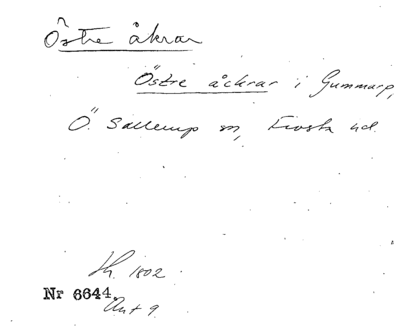 Östre åkrar
Östre åckrar i Gummarp,
Ö. Sallerup sn, Frosta hd.
Sk. 1802
Nr 6644.
Akt 9.